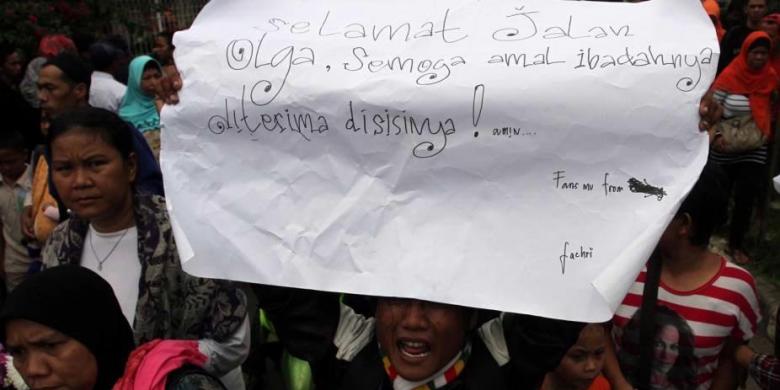 Selamat Jalan
Olga, Semoga amal ibadahnya
diterima disisinya! amin....
Fans mu from
fachri